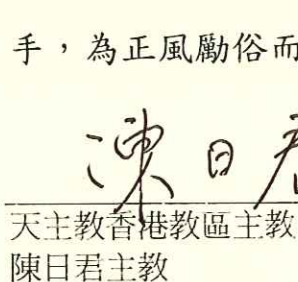 手，為正風勵俗而
陳日君
天主教香港教區主教
陳日君主教